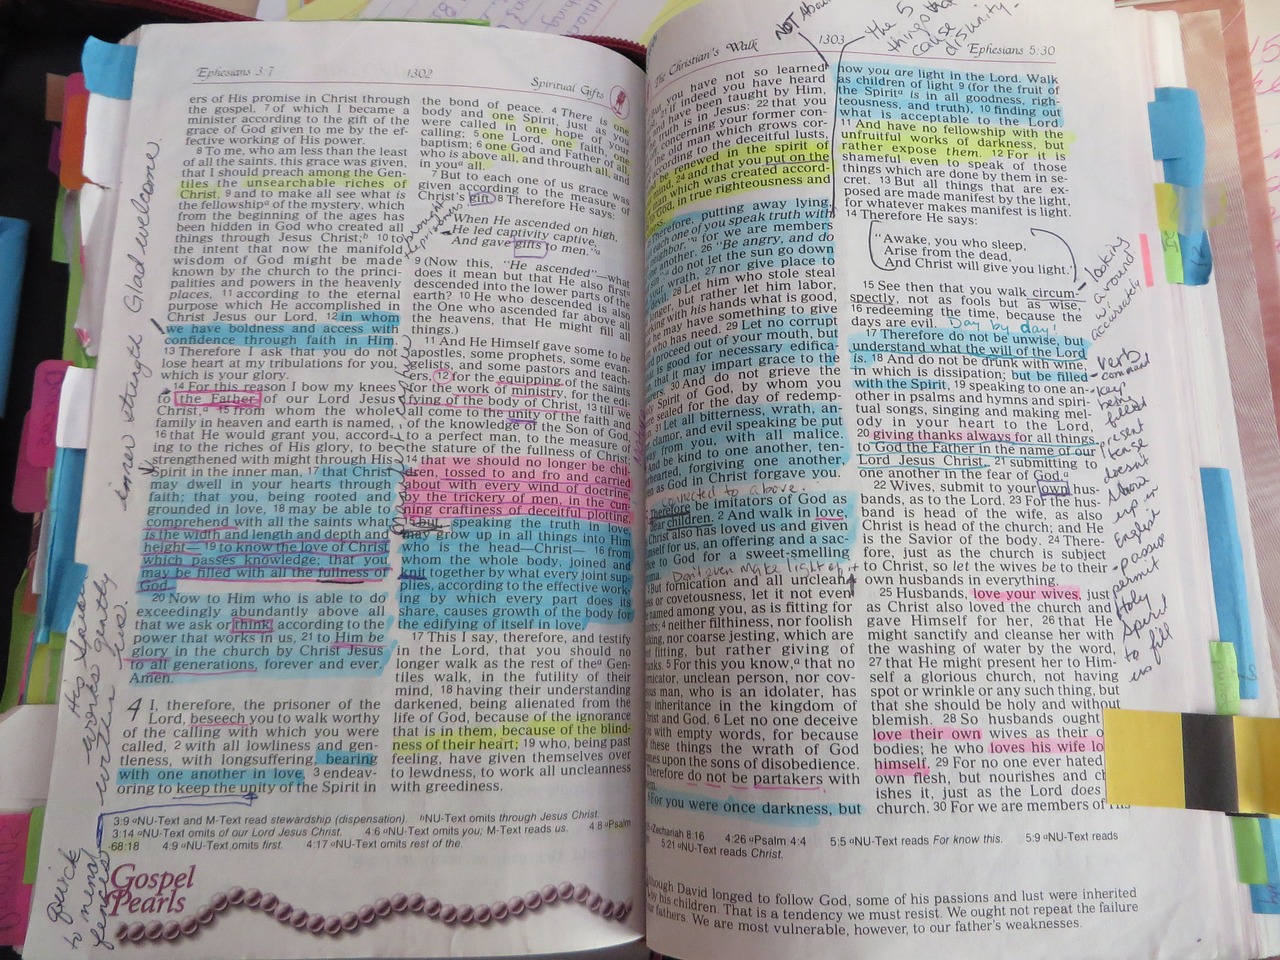 Ephesians 3:7
1302
Spiritual Gifts
ers of His promise in Christ through
the gospel, 7 of which I became a
minister according to the gift of the
grace of God given to me by the ef-
fective working of His power.
8 To me, who am less than the least
of all the saints, this grace was given,
that I should preach among the Gen-
tiles the unsearchable riches of
Christ, 9 and to make all see what is
the fellowshipᵃ of the mystery, which
from the beginning of the ages has
been hidden in God who created all
things through Jesus Christ;ᵇ 10 to
the intent that now the manifold
wisdom of God might be made
known by the church to the princi-
palities and powers in the heavenly
places, 11 according to the eternal
purpose which He accomplished in
Christ Jesus our Lord, 12 in whom
we have boldness and access with
confidence through faith in Him.
13 Therefore I ask that you do not
lose heart at my tribulations for you,
which is your glory.
14 For this reason I bow my knees
to the Father of our Lord Jesus
Christ,ᵃ 15 from whom the whole
family in heaven and earth is named,
16 that He would grant you, accord-
ing to the riches of His glory, to be
strengthened with might through His
Spirit in the inner man, 17 that Christ
may dwell in your hearts through
faith; that you, being rooted and
grounded in love, 18 may be able to
comprehend with all the saints what
is the width and length and depth and
height— 19 to know the love of Christ
which passes knowledge; that you
may be filled with all the fullness of
God.
20 Now to Him who is able to do
exceedingly abundantly above all
that we ask or think, according to the
power that works in us, 21 to Him be
glory in the church by Christ Jesus
to all generations, forever and ever.
Amen.
4 I, therefore, the prisoner of the
Lord, beseech you to walk worthy
of the calling with which you were
called, 2 with all lowliness and gen-
tleness, with longsuffering, bearing
with one another in love, 3 endeav-
oring to keep the unity of the Spirit in
the bond of peace. 4 There is one
body and one Spirit, just as you
were called in one hope of your
calling; 5 one Lord, one faith, one
baptism; 6 one God and Father of all,
who is above all, and through all, and
in youᵃ all.
7 But to each one of us grace was
given according to the measure of
Christ's gift. 8 Therefore He says:
"When He ascended on high,
He led captivity captive,
And gave gifts to men."ᵃ
9 (Now this, "He ascended"—what
does it mean but that He also firstᵃ
descended into the lower parts of the
earth? 10 He who descended is also
the One who ascended far above all
the heavens, that He might fill all
things.)
11 And He Himself gave some to be
apostles, some prophets, some evan-
gelists, and some pastors and teach-
ers, 12 for the equipping of the saints
for the work of ministry, for the edi-
fying of the body of Christ, 13 till we
all come to the unity of the faith and
of the knowledge of the Son of God,
to a perfect man, to the measure of
the stature of the fullness of Christ;
14 that we should no longer be chil-
dren, tossed to and fro and carried
about with every wind of doctrine,
by the trickery of men, in the cun-
ning craftiness of deceitful plotting,
15 but, speaking the truth in love,
may grow up in all things into Him
who is the head—Christ— 16 from
whom the whole body, joined and
knit together by what every joint sup-
plies, according to the effective work-
ing by which every part does its
share, causes growth of the body for
the edifying of itself in love.
17 This I say, therefore, and testify
in the Lord, that you should no
longer walk as the rest of theᵃ Gen-
tiles walk, in the futility of their
mind, 18 having their understanding
darkened, being alienated from the
life of God, because of the ignorance
that is in them, because of the blind-
ness of their heart; 19 who, being past
feeling, have given themselves over
to lewdness, to work all uncleanness
with greediness.
3:9 ᵃNU-Text and M-Text read stewardship (dispensation). ᵇNU-Text omits through Jesus Christ.
3:14 ᵃNU-Text omits of our Lord Jesus Christ. 4:6 ᵃNU-Text omits you; M-Text reads us. 4:8 ᵃPsalm
68:18 4:9 ᵃNU-Text omits first. 4:17 ᵃNU-Text omits rest of the.
Gospel
Pearls
inner strength Glad welcome.
His Spirit
works gently
within us.
quick
to mend
fences
The Christian's Walk
1303
Ephesians 5:30
NOT About
the 5
things that
cause
disunity.
you have not so learned
if indeed you have heard
have been taught by Him,
truth is in Jesus: 22 that you
concerning your former con-
the old man which grows cor-
according to the deceitful lusts,
be renewed in the spirit of
mind, 24 and that you put on the
man which was created accord-
God, in true righteousness and
Therefore, putting away lying,
each one of you speak truth with
neighbor," for we are members
one another. 26 "Be angry, and do
do not let the sun go down
your wrath, 27 nor give place to
devil. 28 Let him who stole steal
longer, but rather let him labor,
working with his hands what is good,
he may have something to give
who has need. 29 Let no corrupt
proceed out of your mouth, but
is good for necessary edifica-
that it may impart grace to the
30 And do not grieve the
Spirit of God, by whom you
sealed for the day of redemp-
31 Let all bitterness, wrath, an-
clamor, and evil speaking be put
away from you, with all malice.
And be kind to one another, ten-
forgiving one another,
as God in Christ forgave you.
connected to above.
Therefore be imitators of God as
dear children. 2 And walk in love,
Christ also has loved us and given
Himself for us, an offering and a sac-
to God for a sweet-smelling
Don't even make light of it
But fornication and all unclean-
or covetousness, let it not even
named among you, as is fitting for
4 neither filthiness, nor foolish
nor coarse jesting, which are
fitting, but rather giving of
5 For this you know,ᵃ that no
unclean person, nor cov-
man, who is an idolater, has
inheritance in the kingdom of
Christ and God. 6 Let no one deceive
with empty words, for because of
these things the wrath of God
comes upon the sons of disobedience.
Therefore do not be partakers with
For you were once darkness, but
now you are light in the Lord. Walk
as children of light 9 (for the fruit of
the Spiritᵃ is in all goodness, righ-
teousness, and truth), 10 finding out
what is acceptable to the Lord.
11 And have no fellowship with the
unfruitful works of darkness, but
rather expose them. 12 For it is
shameful even to speak of those
things which are done by them in se-
cret. 13 But all things that are ex-
posed are made manifest by the light,
for whatever makes manifest is light.
14 Therefore He says:
"Awake, you who sleep,
Arise from the dead,
And Christ will give you light."
15 See then that you walk circum-
spectly, not as fools but as wise,
16 redeeming the time, because the
days are evil. Day by day!
17 Therefore do not be unwise, but
understand what the will of the Lord
is. 18 And do not be drunk with wine,
in which is dissipation; but be filled
with the Spirit, 19 speaking to one an-
other in psalms and hymns and spiri-
tual songs, singing and making mel-
ody in your heart to the Lord,
20 giving thanks always for all things
to God the Father in the name of our
Lord Jesus Christ, 21 submitting to
one another in the fear of God.ᵃ
22 Wives, submit to your own hus-
bands, as to the Lord. 23 For the hus-
band is head of the wife, as also
Christ is head of the church; and He
is the Savior of the body. 24 There-
fore, just as the church is subject
to Christ, so let the wives be to their
own husbands in everything.
25 Husbands, love your wives, just
as Christ also loved the church and
gave Himself for her, 26 that He
might sanctify and cleanse her with
the washing of water by the word,
27 that He might present her to Him-
self a glorious church, not having
spot or wrinkle or any such thing, but
that she should be holy and without
blemish. 28 So husbands ought
love their own wives as their o
bodies; he who loves his wife lo
himself. 29 For no one ever hated
own flesh, but nourishes and ch
ishes it, just as the Lord does
church. 30 For we are members of
looking
around
accurately
verb
command
keep
being
filled
present
tense
doesn't
show
up in
English
-passive
permit
Holy
Spirit
to fill
us
Zechariah 8:16 4:26 ᵃPsalm 4:4 5:5 ᵃNU-Text reads For know this. 5:9 ᵃNU-Text reads
5:21 ᵃNU-Text reads Christ.
though David longed to follow God, some of his passions and lust were inherited
by his children. That is a tendency we must resist. We ought not repeat the failure
our fathers. We are most vulnerable, however, to our father's weaknesses.